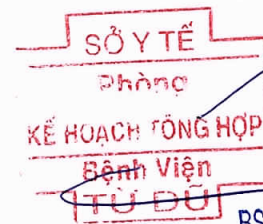 SỞ Y TẾ
Phòng
KẾ HOẠCH TỔNG HỢP
Bệnh Viện
TỪ DŨ
BS